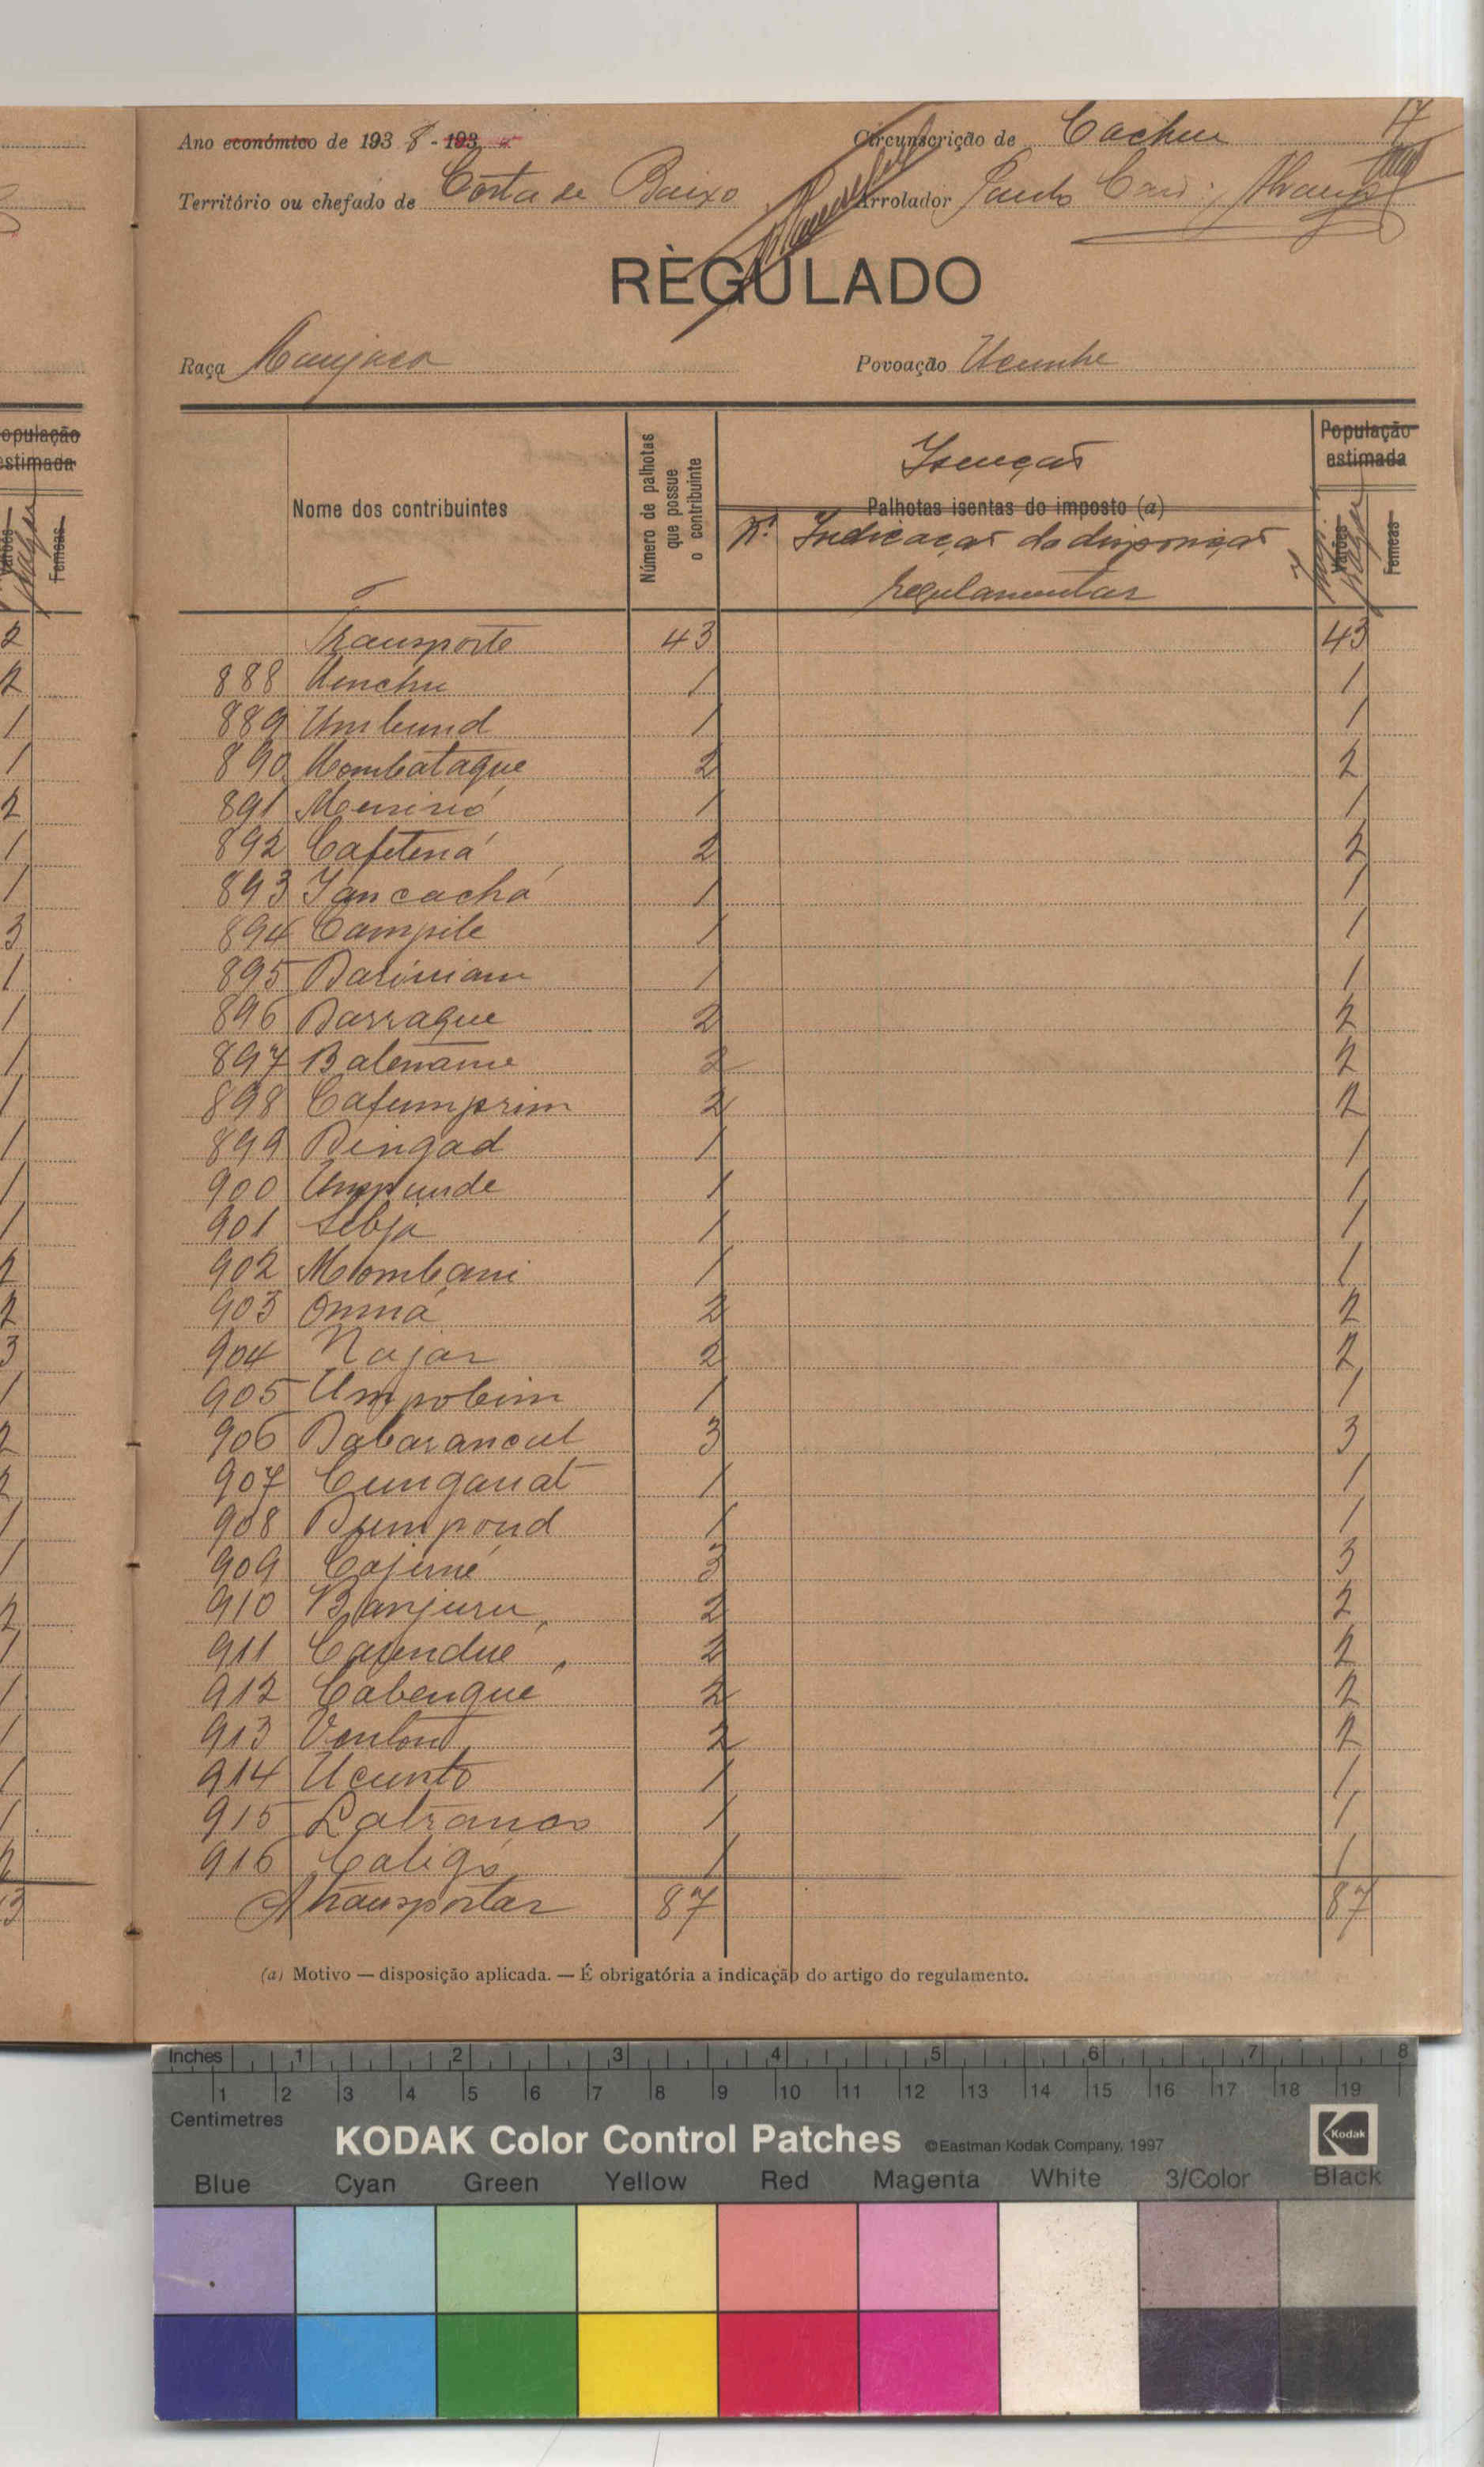 17
Ano económico de 1938-193
Circunscrição de Cacheu
Território ou chefado de Costa de Baixo
Arrolador Paulo
REGULADO
Raça Manjaca
Povoação Ucunhe
População estimada
Nome dos contribuintes
Número de palhotas que possue o contribuinte
Isenções
Palhotas isentas do imposto (a)
N.º Indicação da disposição
regulamentar
População estimada
Varões
Femeas
Varões
Femeas
Transporte 43 43
888 Uenchu 1 1
889 Umbund 1 1
890 Mombataque 2 2
891 1 1
892 Cafetená 2 2
893 Jancachá 1 1
894 Campile 1 1
895 1 1
896 Darraque 2 2
897 Balename 2 2
898 Cafumprim 2 2
899 Bingad 1 1
900 Umpunde 1 1
901 Lebja 1 1
902 Mombani 1 1
903 Omná 2 2
904 Najar 2 2
905 Umpobim 1 1
906 Dabarancul 3 3
907 Cunganat 1 1
908 1 1
909 Cajumé 3 3
910 Banjuru 2 2
911 Caiendué 2 2
912 Cabenqué 2 2
913 2 2
914 Ucunto 1 1
915 Latranco 1 1
916 Caligó 1 1
A transportar 87 87
(a) Motivo — disposição aplicada. — É obrigatória a indicação do artigo do regulamento.
Inches 1 2 3 4 5 6 7 8
1 2 3 4 5 6 7 8 9 10 11 12 13 14 15 16 17 18 19
Centimetres
KODAK Color Control Patches ©Eastman Kodak Company, 1997 Kodak
Blue Cyan Green Yellow Red Magenta White 3/Color Black